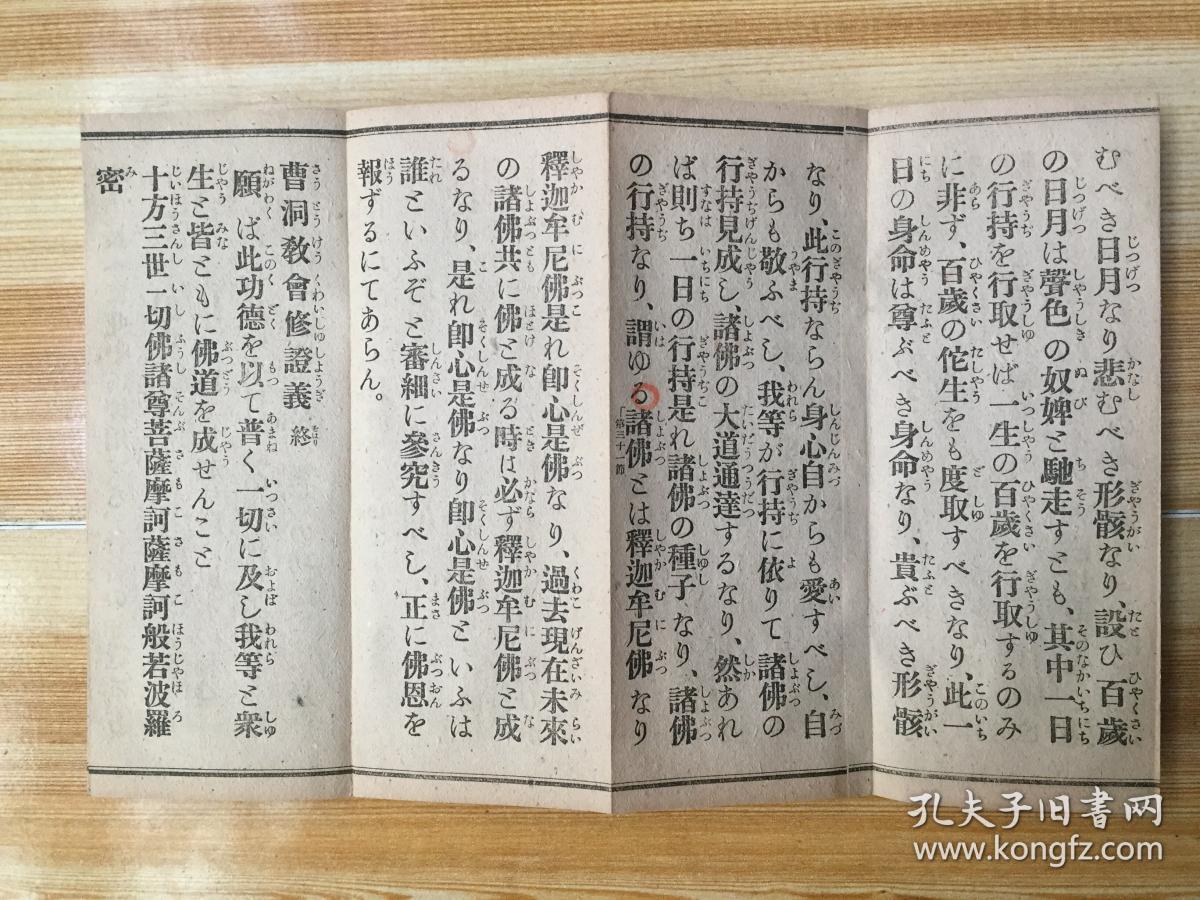 むべき日月なり悲むべき形骸なり、設ひ百歲
の日月は聲色の奴婢と馳走すとも、其中一日
の行持を行取せば一生の百歲を行取するのみ
に非ず、百歲の佗生をも度取すべきなり、此一
日の身命は尊ぶべき身命なり、貴ぶべき形骸
なり、此行持ならん身心自からも愛すべし、自
からも敬ふべし、我等が行持に依りて諸佛の
行持見成し、諸佛の大道通達するなり、然あれ
ば則ち一日の行持是れ諸佛の種子なり、諸佛
の行持なり、謂ゆる諸佛とは釋迦牟尼佛なり
「第三十一節
釋迦牟尼佛是れ卽心是佛なり、過去現在未來
の諸佛共に佛と成る時は必ず釋迦牟尼佛と成
るなり、是れ卽心是佛なり卽心是佛といふは
誰といふぞと審細に參究すべし、正に佛恩を
報ずるにてあらん。
曹洞敎會修證義 終
願ば此功德を以て普く一切に及し我等と衆
生と皆ともに佛道を成せんこと
十方三世一切佛諸尊菩薩摩訶薩摩訶般若波羅
密
孔夫子旧书网
www.kongfz.com